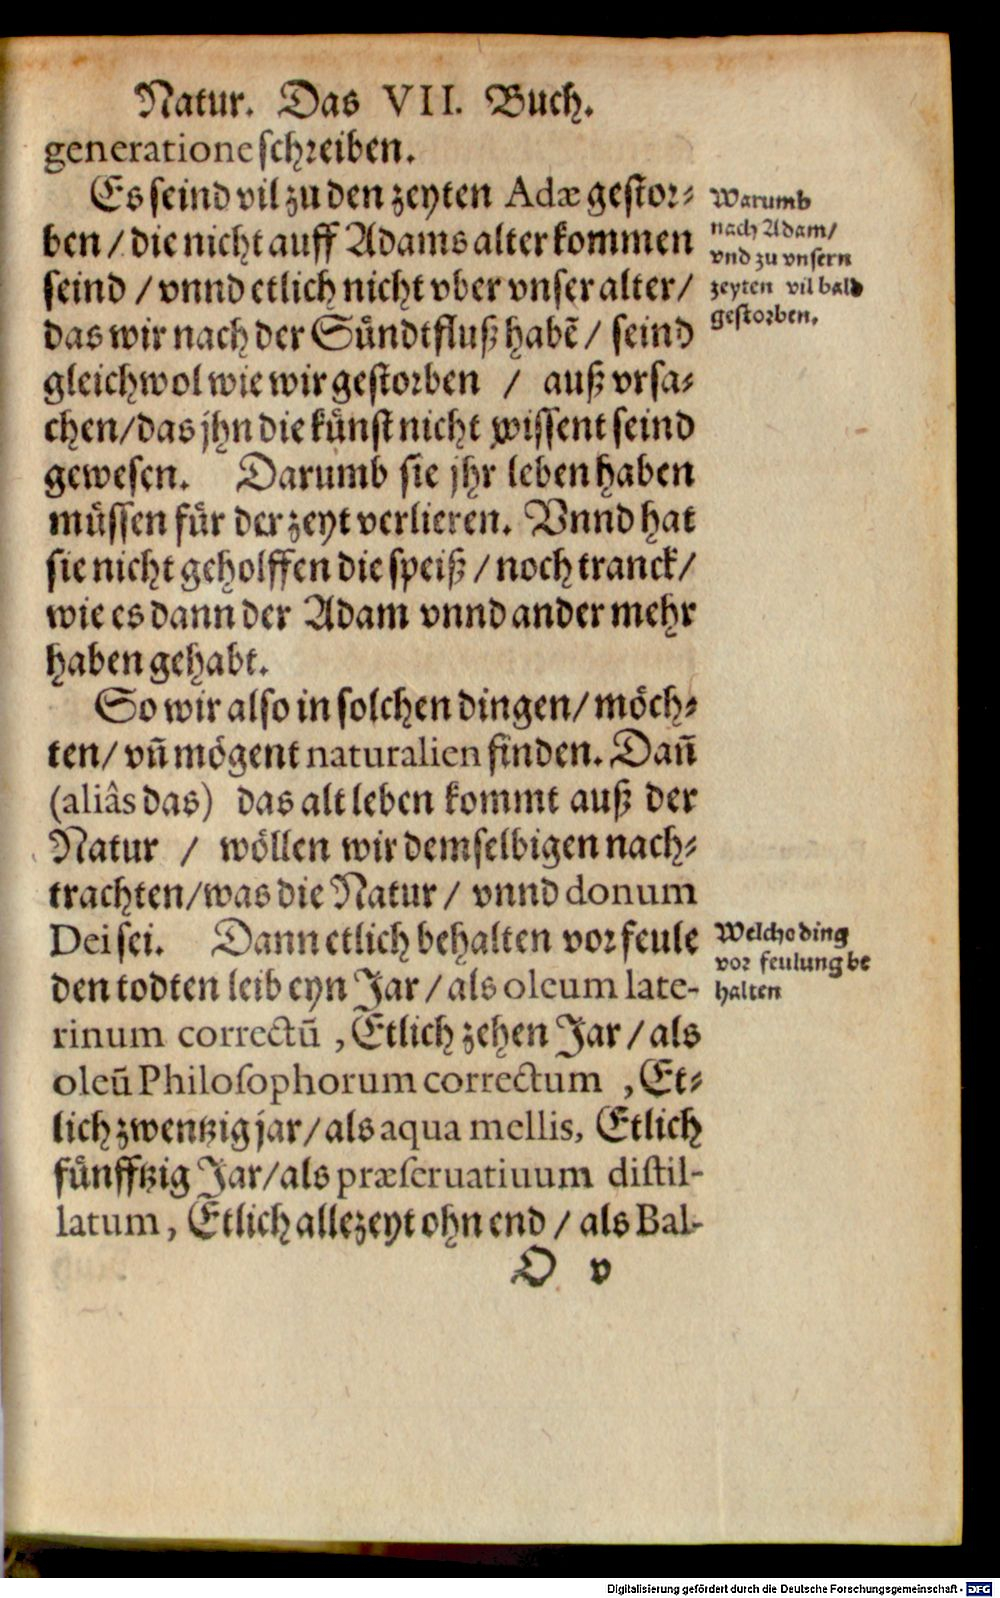 Natur. Das VII. Buch.
generatione schreiben.
Es seind vil zu den zeyten Adæ gestor⸗
ben / die nicht auff Adams alter kommen
seind / vnnd etlich nicht vber vnser alter /
das wir nach der Sündtfluß habẽ / seind
gleichwol wie wir gestorben / auß vrsa⸗
chen / das jhn die künst nicht wissent seind
gewesen. Darumb sie jhr leben haben
müssen für der zeyt verlieren. Vnnd hat
sie nicht geholffen die speiß / noch tranck /
wie es dann der Adam vnnd ander mehr
haben gehabt.
Warumb
nach Adam /
vnd zu vnsern
zeyten vil bald
gestorben.
So wir also in solchen dingen / möch⸗
ten / vñ mögent naturalien finden. Dañ
(aliâs das) das alt leben kommt auß der
Natur / wöllen wir demselbigen nach⸗
trachten / was die Natur / vnnd donum
Dei sei. Dann etlich behalten vor feule
den todten leib eyn Jar / als oleum late-
rinum correctũ , Etlich zehen Jar / als
oleũ Philosophorum correctum , Et⸗
lich zwentzig jar / als aqua mellis, Etlich
fünfftzig Jar / als præseruatiuum distil-
latum, Etlich allezeyt ohn end / als Bal-
Welche ding
vor feulung be
halten
O v
Digitalisierung gefördert durch die Deutsche Forschungsgemeinschaft - DFG